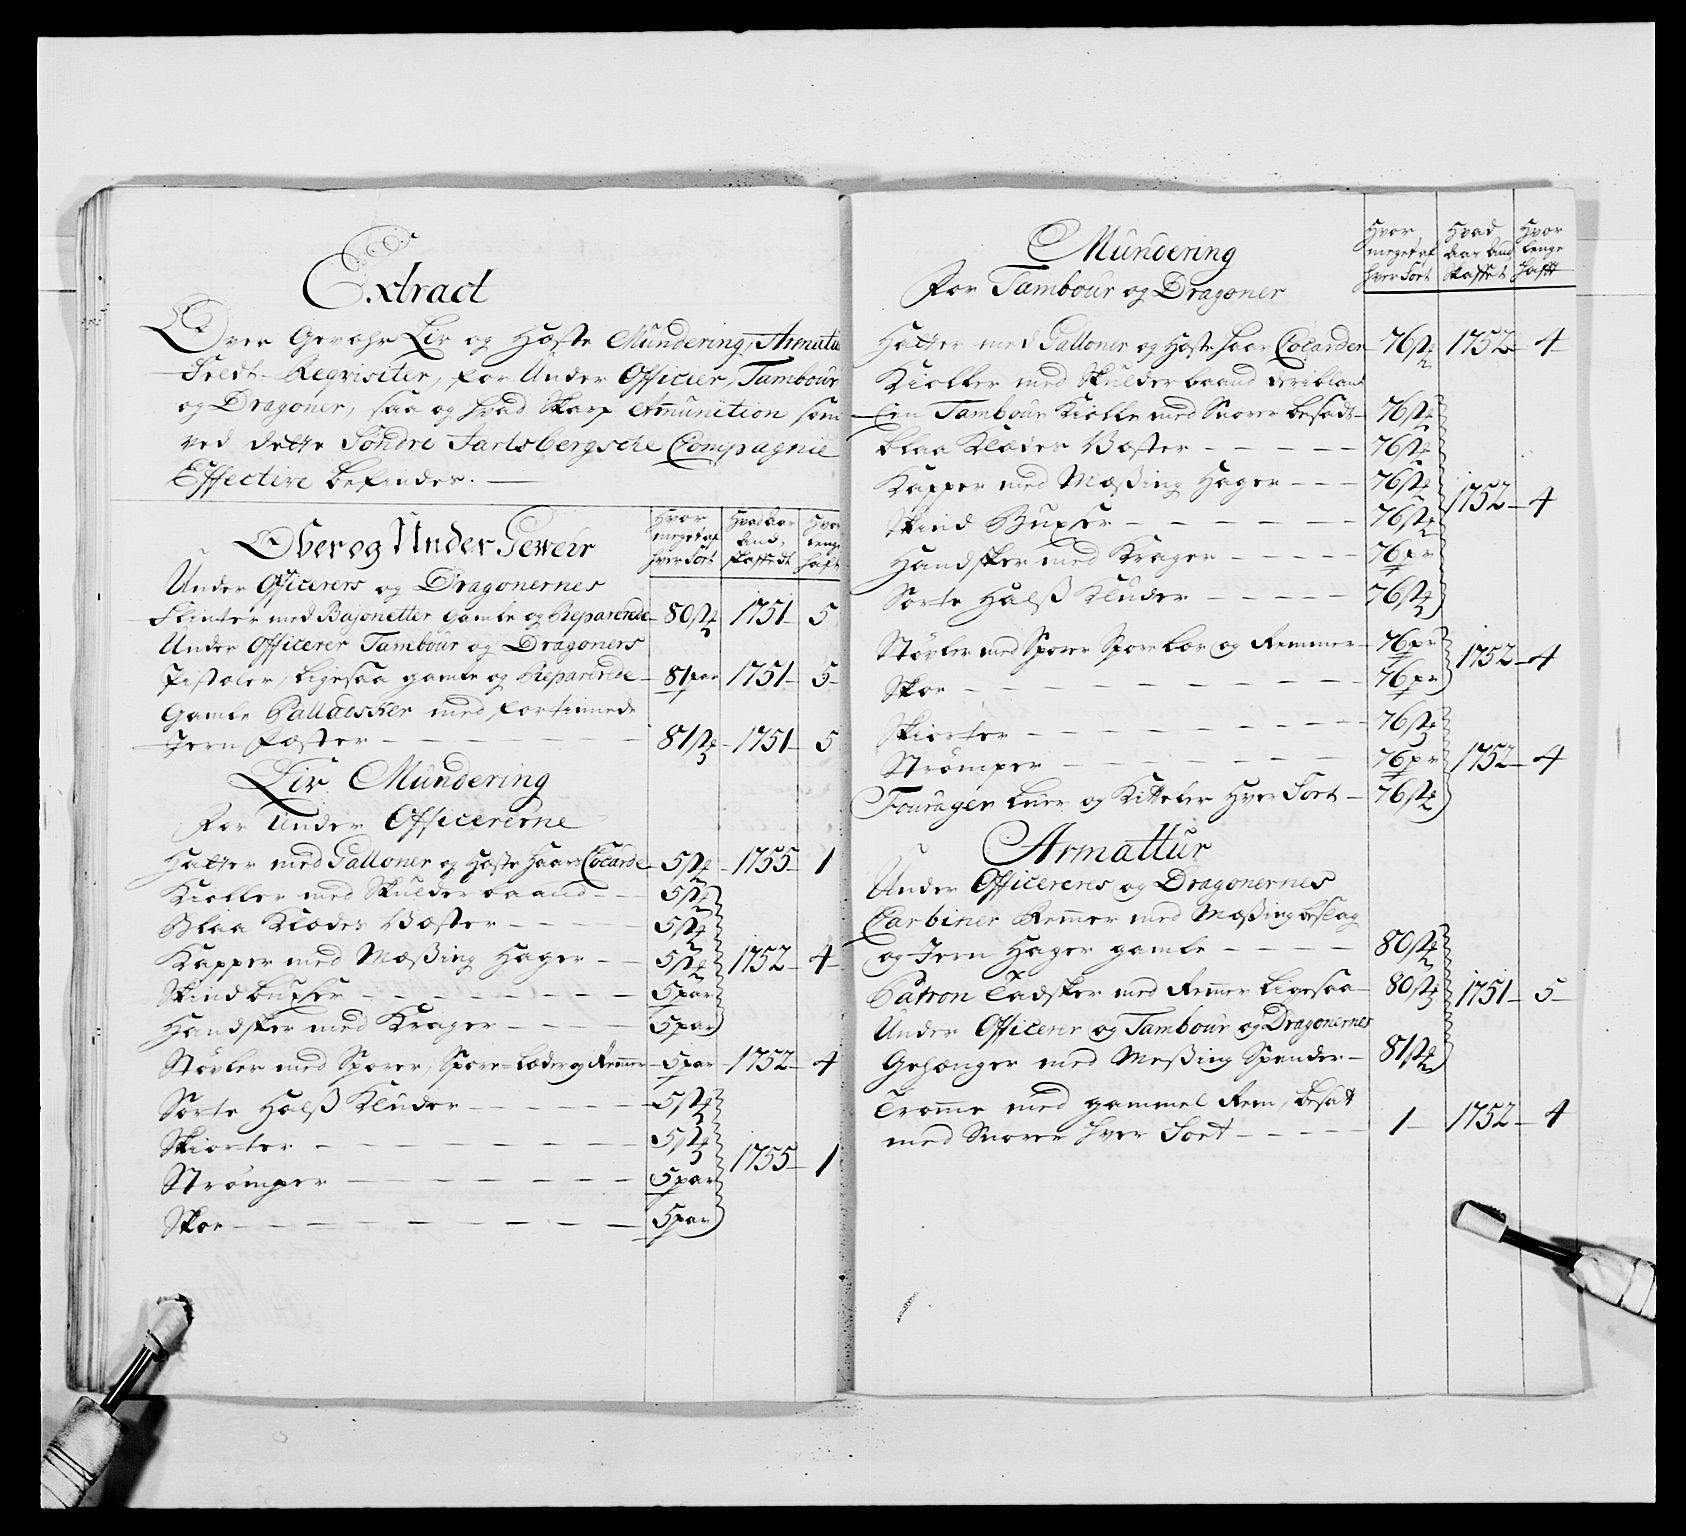 Extract
Over Gevæhr Liv og Hæste Mundering, Armatu
Feldt-Reqvisiter, for Under Officier, Tambour
og Dragoner, saa og hvad Skarp Amunition som
ved dette Söndre Jarlsbergsche Compagnie
Effective befindes. —
Over og Under Geweir
Hvor meget af hver Sort
Hvad Aar And- skaffedt
Hvor lenge haft
Under Officerers og Dragonernes
Flinter med Bajonetter gamle og Reparerede — 80 st — 1751 — 5
Under Officerer Tambour og Dragoners
Pistoler, ligesaa gamle og Reparerede — 81 par — 1751 — 5
Gamle Palladsker med fortinnede
Jern Fæster — 81 st — 1751 — 5
Liv Mundering
For Under Officererne
Hatter med Galloner og Hæste Haars Cocarde — 5 st — 1755 — 1
Kioller med Skulderbaand — 5 st
Blaa Klædes Væster — 5 st
Kapper med Mæßing Hager — 5 st — 1752 — 4
Skind buxer — 5 par
Handsker med Krager — 5 par
Støvler med Sporer, Spore-Læder og Remer — 5 par — 1752 — 4
Sorte Halß Kluder — 5 st
Skiorter — 5 st
1755 — 1
Strømper — 5 par
Skoe — 5 par
Mundering
For Tambour og Dragoner
Hvor meget af hver Sort
Hvad Aar And skaffet
Hvor lenge hafft
Hatter med Galloner og Hæste haar Cocarder — 76 st — 1752 — 4
Kioller med Skulderbaand deriblant
Een Tambour Kiolle med Snorer besadt — 76 st
blaa Klædes Væster — 76 st
Kapper med Mæßing Hager — 76 st
1752 — 4
Skind Buxer — 76 st
Handsker med Krager — 76 pr
Sorte Halß Kluder — 76 st
Støvler med Sporer Spore lær og Remmer — 76 pr
1752 — 4
Skoe — 76 pr
Skiorter — 76 st
Strømper — 76 pr — 1752 — 4
Fourager Liner og Kitteler Hver Sort — 76 st
Armattur
Under Officereres og Dragonernes
Carbiner Remer med Mæßing beslag
og Jern Hager gamle — 80 st
Patron Tadsker med Remer ligesaa — 80 st — 1751 — 5
Under Officerer og Tambour og Dragonernes
Gehænger med Meßing Spender — 81 st
Tromme med gammel Rem, besat
med Snorer hver Sort — 1 — 1752 — 4